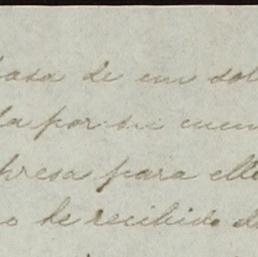 casa de un sol
la por su cuen
presa para ello
o he recibido d